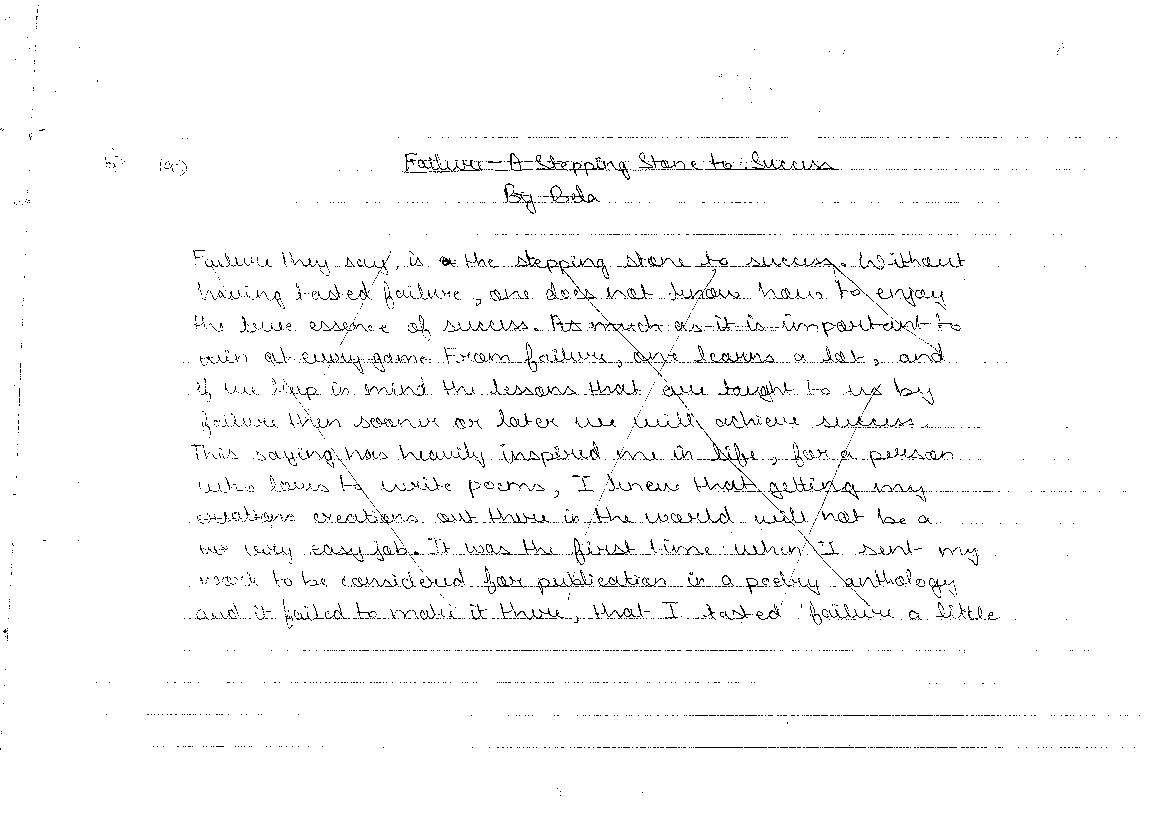 5 (a)
Failure - A Stepping Stone to Success
By Bela
Failure they say, is a the stepping stone to success. Without
having tasted failure, one does not know how to enjoy
the true essence of success. As much as it is important to
win at every game From failure, one learns a lot, and
if we keep in mind the lessons that are taught to us by
failure then sooner or later we will achieve success.
This saying has heavily inspired me in life, for a person
who loves to write poems, I knew that getting my
creations creations out there in the world will not be a
very easy job. It was the first time when I sent my
work to be considered for publication in a poetry anthology
and it failed to make it there, that I tasted failure a little